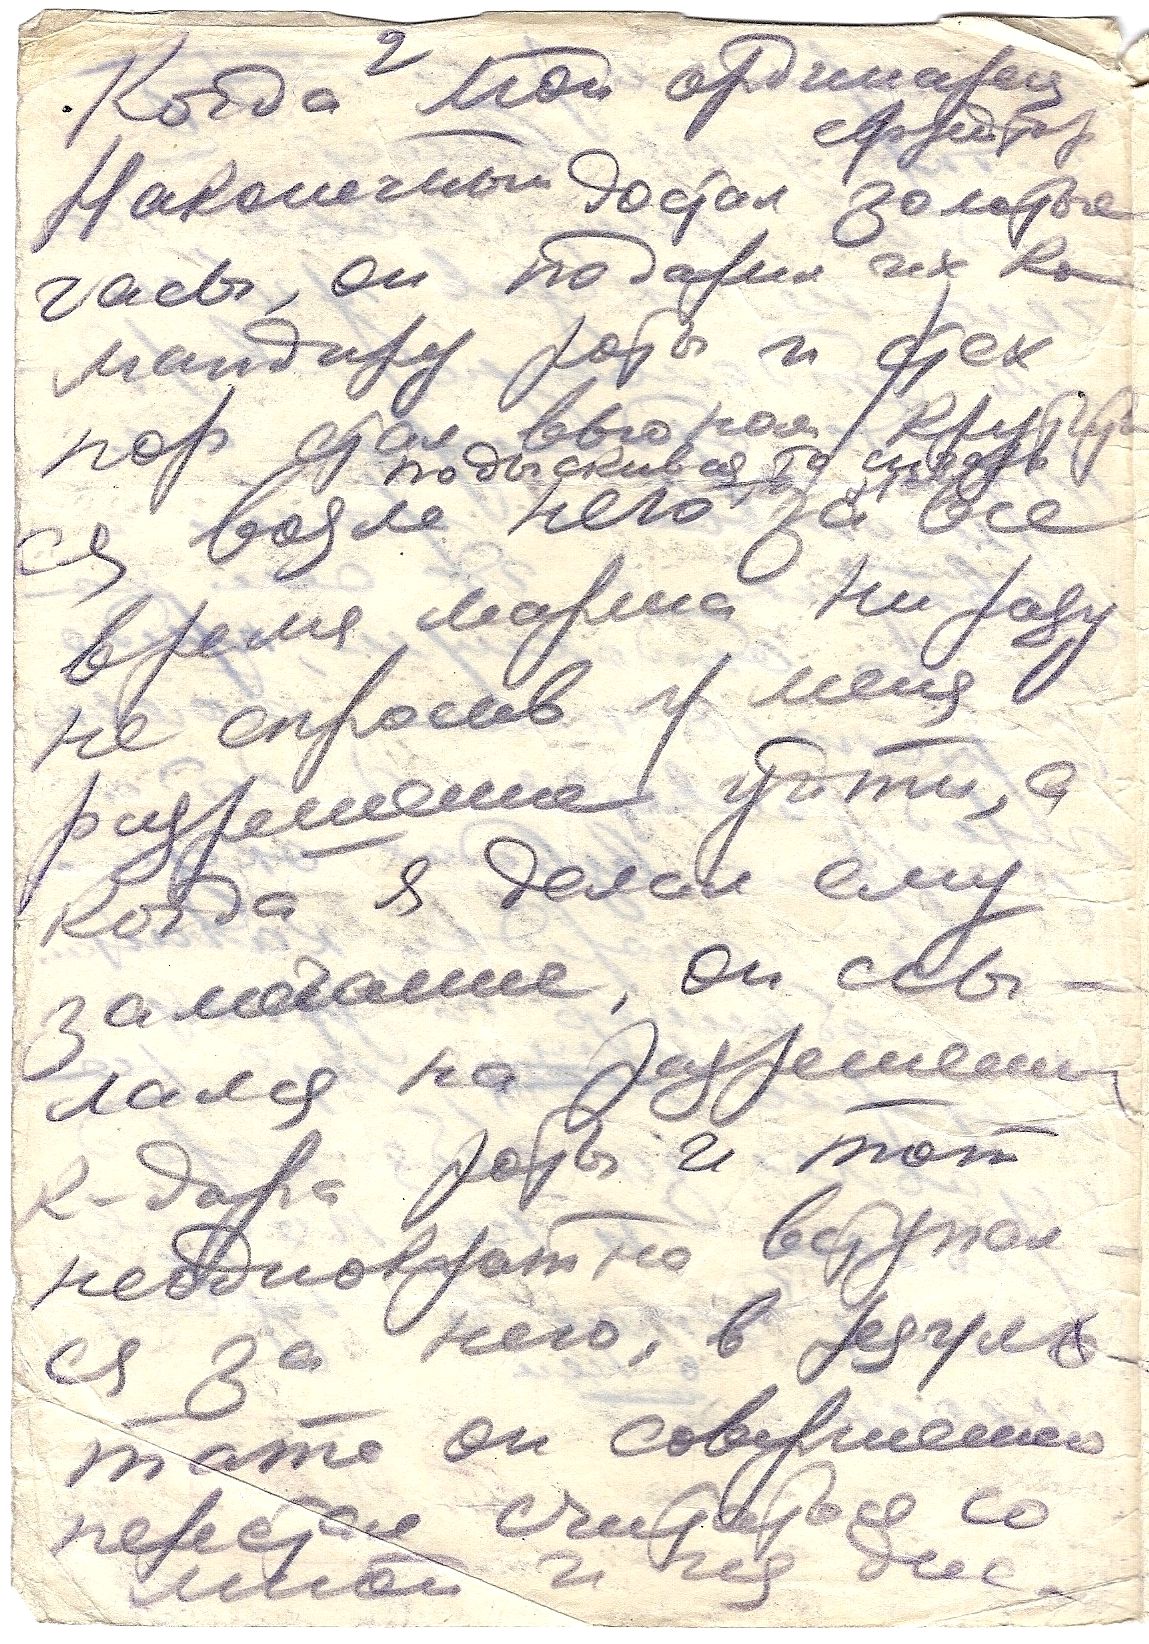 2
Когда мой ординарец
ефрейтор
Наконечный достал золотые
часы, он подарил их ко
мандиру роты и с тех
пор стал вьюном крутить
подыскивая
ся возле него за все
время марша ни разу
не спросив у меня
разрешения уйти, а
когда я делал ему
замечание, он ссы-
лался на разрешение
к-дира роты и тот
неоднократно вступал-
ся за него, в резуль
тате он совершенно
перестал считаться со
мной и из дис-